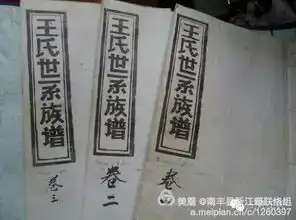 王氏世系族谱
卷三
王氏世系族谱
卷二
王氏世系族谱
卷
美篇@南丰县浙江籍联络组
a.meipian.cn/c/1260397